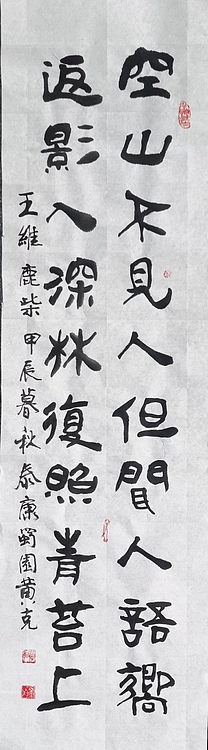 空山不見人但聞人語響
返影入深林復照青苔上
王維鹿柴甲辰暮秋泰康蜀園黃克